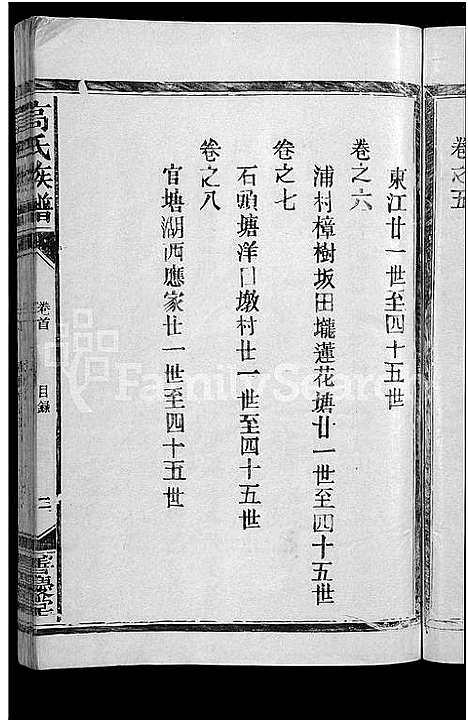 卷之五
東江廿一世至四十五世
卷之六
浦村樟樹坂田壠蓮花塘廿一世至四十五世
卷之七
石頭塘洋口墩村廿一世至四十五世
卷之八
官塘湖西應家廿一世至四十五世
高氏族譜
卷首
目錄
三
FamilySearch